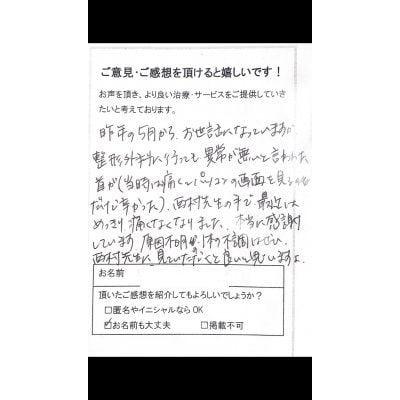 ご意見・ご感想を頂けると嬉しいです！
お声を頂き、より良い治療・サービスをご提供していき
たいと考えております。
昨年の5月から、お世話になっていますが
整形外科に行っても異常が無いと言われた
首が(当時は痛くてパソコンの画面を見るのも
だけで辛かった)、西村先生の手で最近は
めっきり痛くなくなりました。本当に感謝
しています。原因不明の体の不調はぜひ
西村先生に見ていただくと良いと思いますよ。
お名前
頂いたご感想を紹介してもよろしいでしょうか？
□匿名やイニシャルならOK
☑お名前も大丈夫 □掲載不可